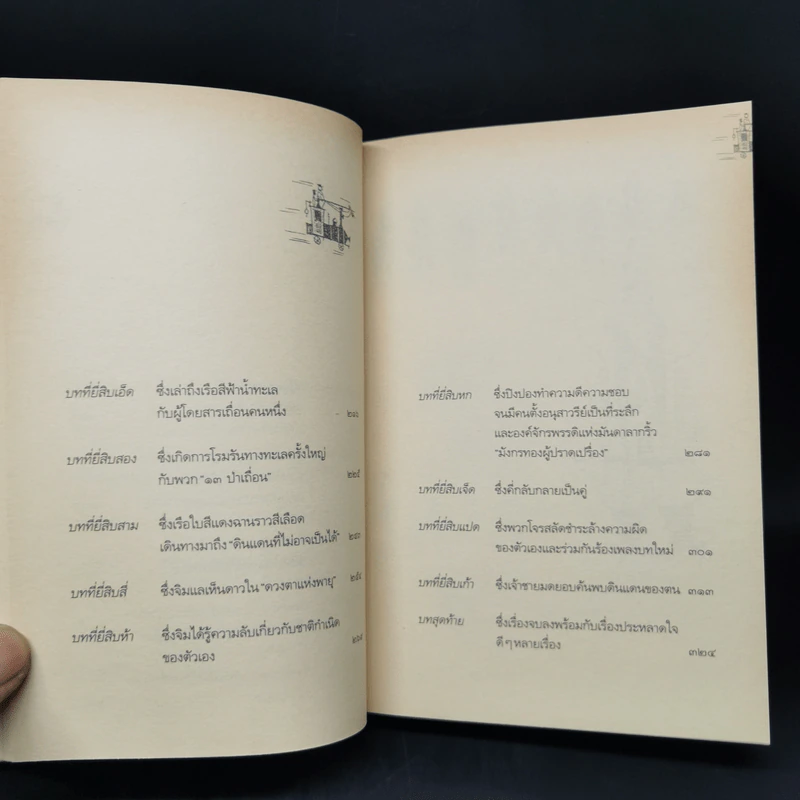 บทที่ยี่สิบเอ็ด ซึ่งเล่าถึงเรือสีฟ้าน้ำทะเล
กับผู้โดยสารเถื่อนคนหนึ่ง
บทที่ยี่สิบสอง ซึ่งเกิดการโรมรันทางทะเลครั้งใหญ่
กับพวก "๑๓ ป่าเถื่อน" ๒๒๕
บทที่ยี่สิบสาม ซึ่งเรือใบสีแดงฉานราวสีเลือด
เดินทางมาถึง "ดินแดนที่ไม่อาจเป็นได้"
บทที่ยี่สิบสี่ ซึ่งจิมแลเห็นดาวใน "ดวงตาแห่งพายุ"
บทที่ยี่สิบห้า ซึ่งจิมได้รู้ความลับเกี่ยวกับชาติกำเนิด
ของตัวเอง
บทที่ยี่สิบหก ซึ่งปิงปองทำความดีความชอบ
จนมีคนตั้งอนุสาวรีย์เป็นที่ระลึก
และองค์จักรพรรดิแห่งมันดาลากริ้ว
"มังกรทองผู้ปราดเปรื่อง" ๒๘๑
บทที่ยี่สิบเจ็ด ซึ่งคี่กลับกลายเป็นคู่ ๒๙๑
บทที่ยี่สิบแปด ซึ่งพวกโจรสลัดชำระล้างความผิด
ของตัวเองและร่วมกันร้องเพลงบทใหม่ ๓๐๑
บทที่ยี่สิบเก้า ซึ่งเจ้าชายมดยอบค้นพบดินแดนของตน ๓๑๓
บทสุดท้าย ซึ่งเรื่องจบลงพร้อมกับเรื่องประหลาดใจ
ดีๆ หลายเรื่อง ๓๒๔